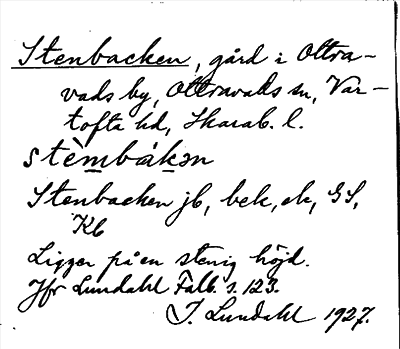 Stenbacken, gård i Ottra-
vads by, Ottravads sn, Var-
tofta hd, Skarab. l.
stèmbákən
Stenbacken jb, bek, ek, GS,
Kb
Ligger på en stenig höjd.
Jfr Lundahl Falb. s. 123.
I. Lundahl 1927.